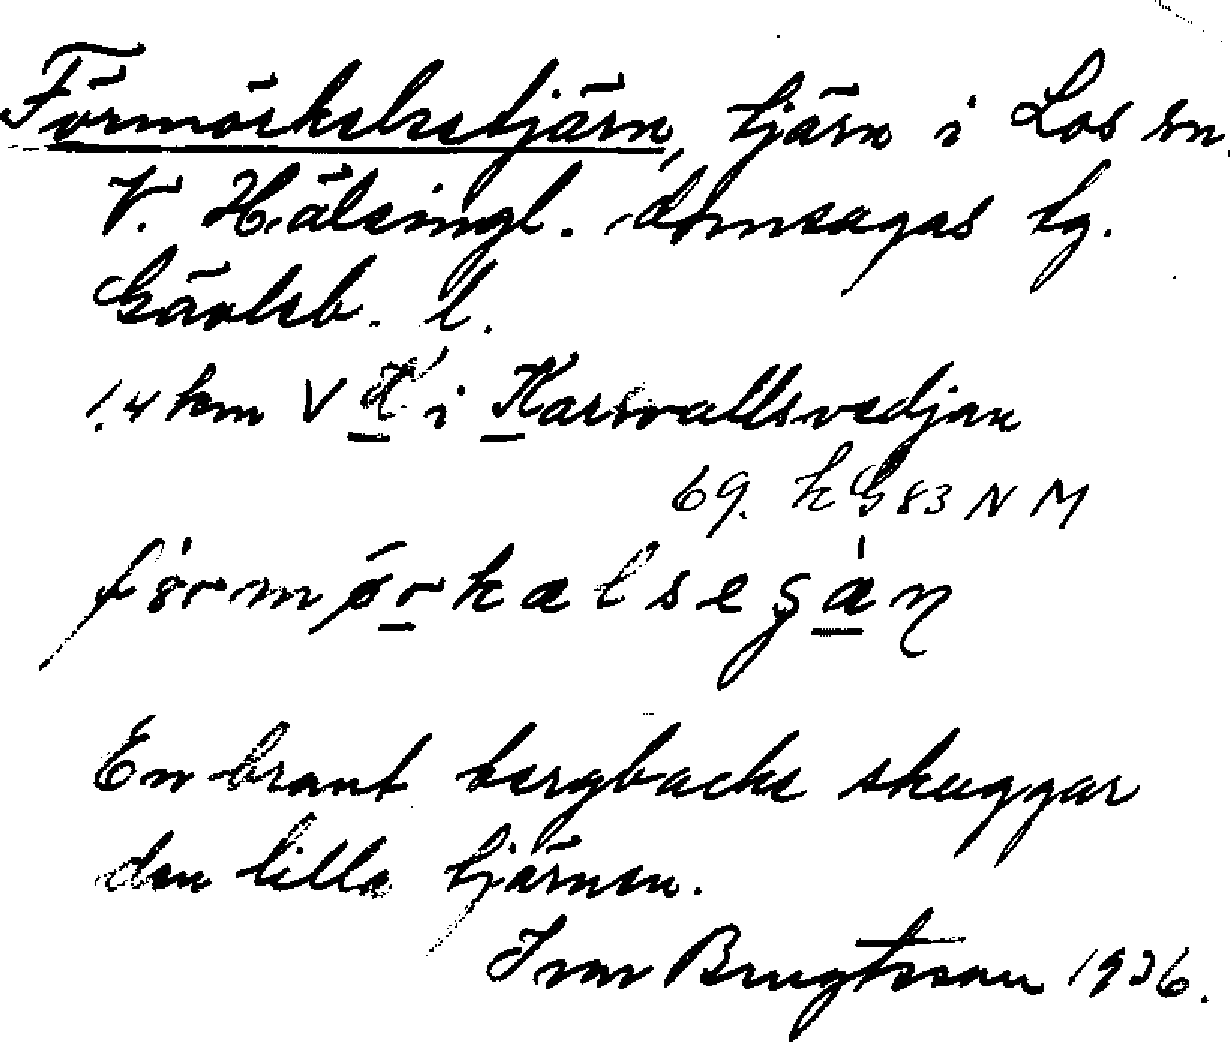 Förmörkelsetjärn, tjärn i Los sn.
V. Hälsingl. domsagas tg.
Gävleb. l.
1,4 km V K i Karsvallsvedjan
69. kG 83 N M
förmörkalseʂàn
En brant bergbacke skuggar
den lilla tjärnen.
Ivar Bengtsson 1936.